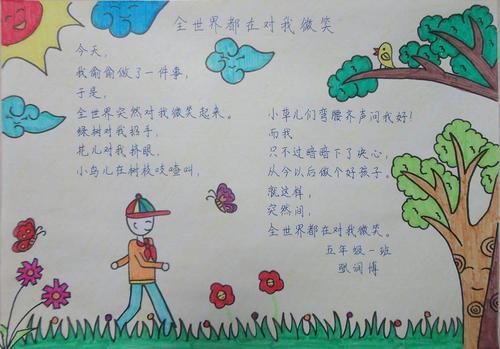 全世界都在对我微笑
今天,
我偷偷做了一件事,
于是,
全世界突然对我微笑起来。
绿树对我招手,
花儿对我挤眼,
小鸟儿在树枝吱喳叫,
小草儿们弯腰齐声问我好!
而我
只不过暗暗下了决心,
从今以后做个好孩子。
就这样,
突然间,
全世界都在对我微笑。
五年级一班
张润博